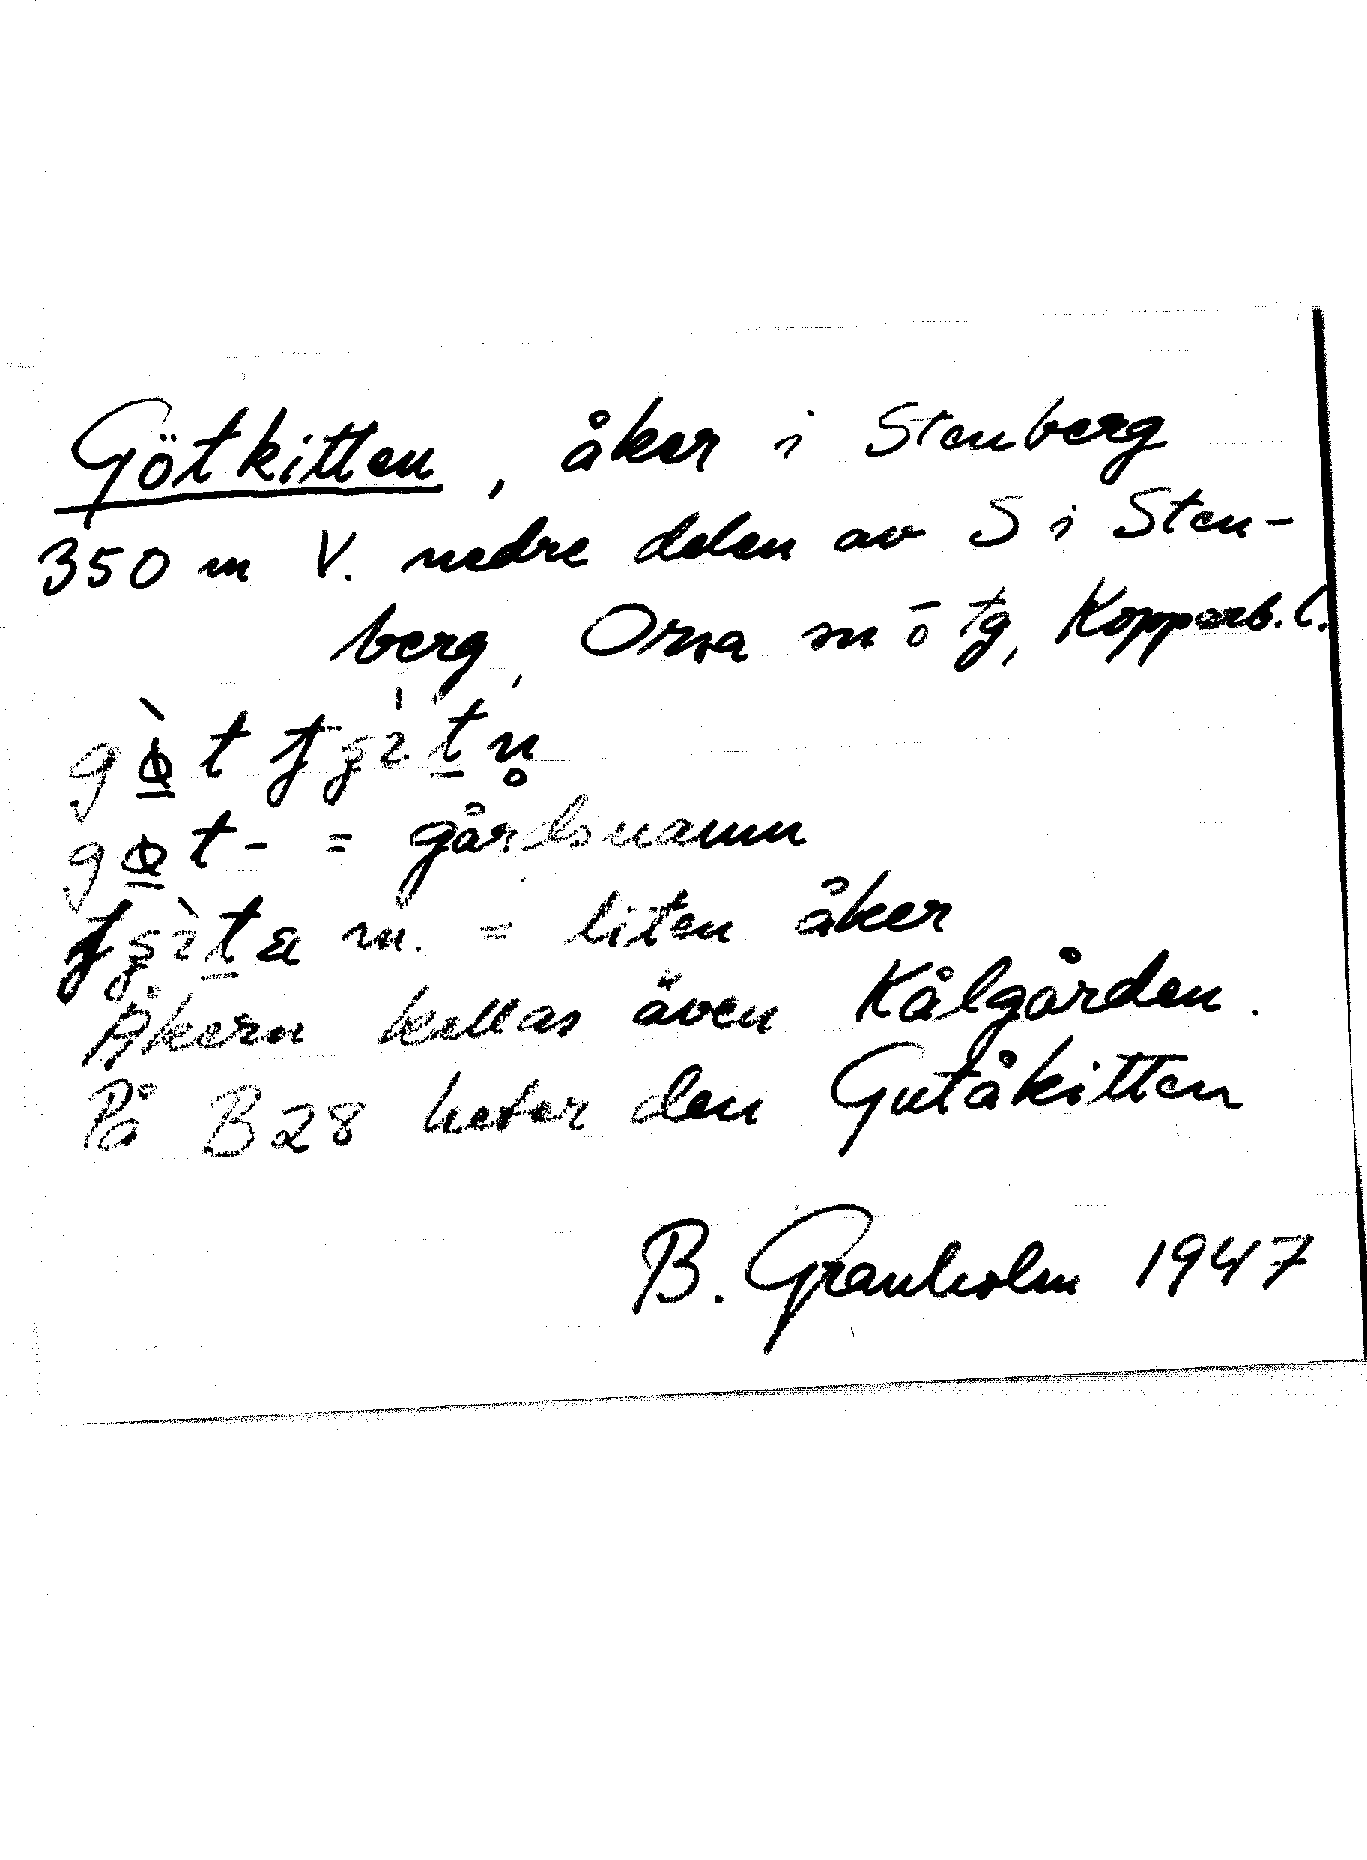 Götkitten, åker i Stenberg
350 m V. nedre delen av S i Sten-
berg, Orsa sn o tg, Kopparb. l.
gø̀t
gø̲t- = gårdsnamn
m. = liten åker
Åkern kallas även Kålgården.
På B28 heter den Gutåkitten
B. Granholm 1947